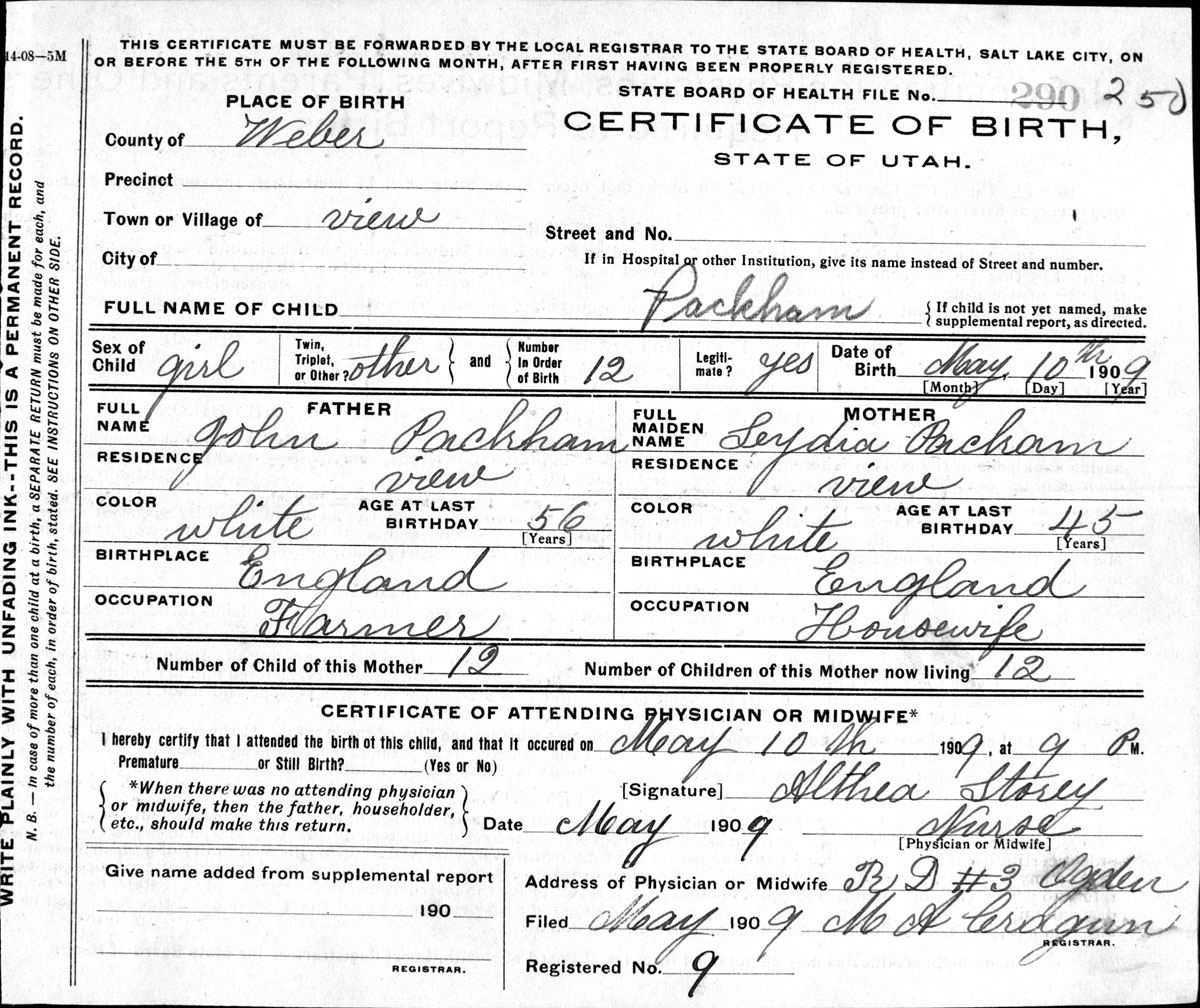 14-08—5M
THIS CERTIFICATE MUST BE FORWARDED BY THE LOCAL REGISTRAR TO THE STATE BOARD OF HEALTH, SALT LAKE CITY, ON
OR BEFORE THE 5TH OF THE FOLLOWING MONTH, AFTER FIRST HAVING BEEN PROPERLY REGISTERED.
STATE BOARD OF HEALTH FILE No. 290 250
PLACE OF BIRTH
CERTIFICATE OF BIRTH,
STATE OF UTAH.
County of Weber
Precinct
Town or Village of view
Street and No.
City of
If in Hospital or other Institution, give its name instead of Street and number.
FULL NAME OF CHILD Packham {If child is not yet named, make
supplemental report, as directed.
Sex of Child girl Twin, Triplet, or Other? other } and { Number In Order of Birth 12 Legiti-mate? yes Date of Birth May 10th 1909
[Month] [Day] [Year]
FATHER
FULL NAME John Packham
RESIDENCE view
COLOR white AGE AT LAST BIRTHDAY 56 [Years]
BIRTHPLACE England
OCCUPATION Farmer
MOTHER
FULL MAIDEN NAME Leydia Pacham
RESIDENCE view
COLOR white AGE AT LAST BIRTHDAY 45 [Years]
BIRTHPLACE England
OCCUPATION Housewife
Number of Child of this Mother 12 Number of Children of this Mother now living 12
CERTIFICATE OF ATTENDING PHYSICIAN OR MIDWIFE*
I hereby certify that I attended the birth of this child, and that it occured on May 10th 1909, at 9 PM.
Premature or Still Birth? (Yes or No)
{ *When there was no attending physician
or midwife, then the father, householder,
etc., should make this return. }
[Signature] Althea Storey
Date May 1909 Nurse
[Physician or Midwife]
Give name added from supplemental report
190
REGISTRAR.
Address of Physician or Midwife R D #3 Ogden
Filed May 1909 M A
REGISTRAR.
Registered No. 9
WRITE PLAINLY WITH UNFADING INK--THIS IS A PERMANENT RECORD.
N. B. — In case of more than one child at a birth, a SEPARATE RETURN must be made for each, and
the number of each, in order of birth, stated. SEE INSTRUCTIONS ON OTHER SIDE.